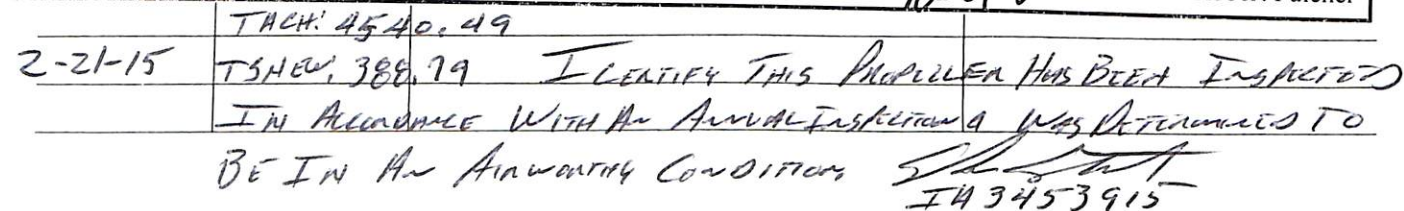 TACH: 4540.49
2-21-15 TSNEW. 388.79 I CERTIFY THIS PROPELLER HAS BEEN INSPECTED
IN ACCORDANCE WITH AN ANNUAL INSPECTION & WAS DETERMINED TO
BE IN AN AIRWORTHY CONDITION.
IA3453915